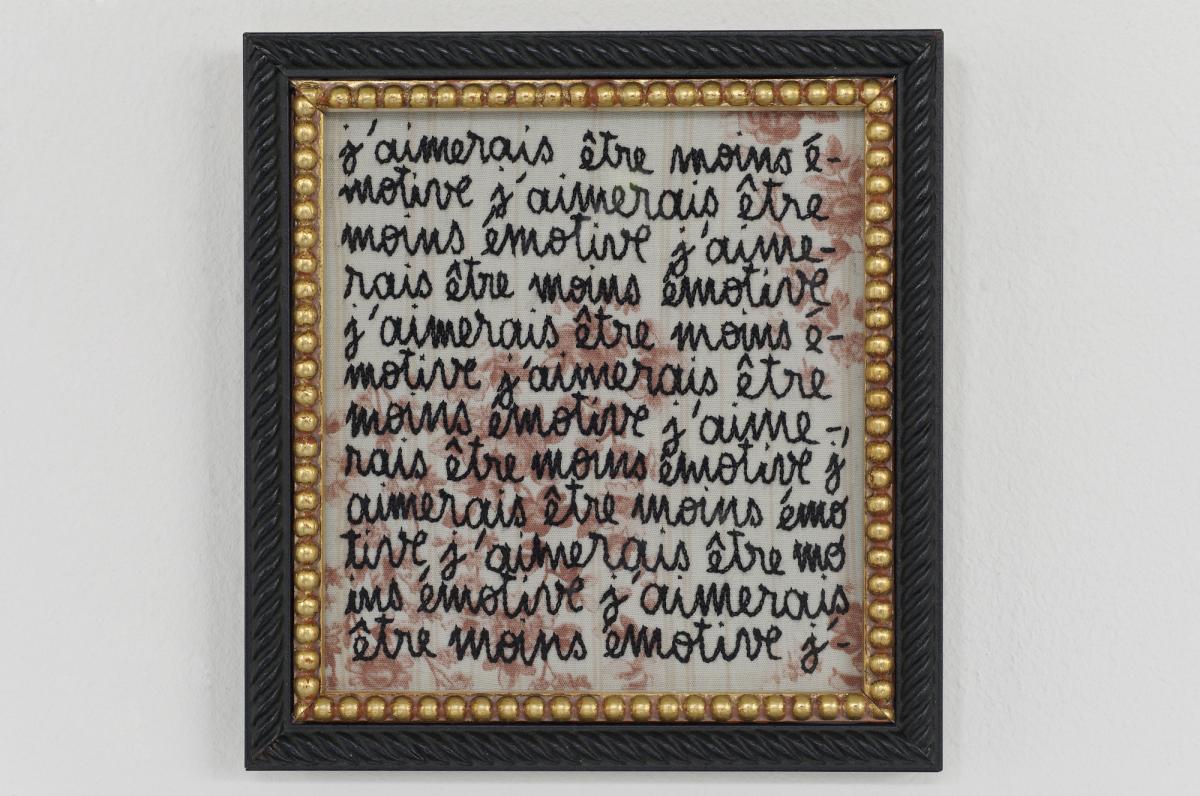 j'aimerais être moins é-
motive j'aimerais être
moins émotive j'aime-
rais être moins émotive
j'aimerais être moins é-
motive j'aimerais être
moins émotive j'aime-
rais être moins émotive j'
aimerais être moins émo
tive j'aimerais être mo
ins émotive j'aimerais
être moins émotive j'-